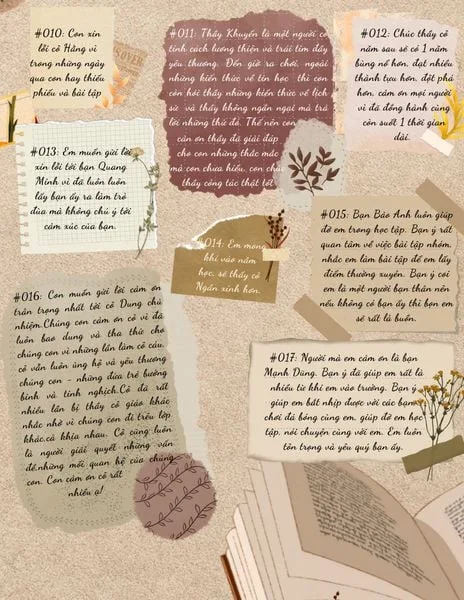 #010: Con xin
lỗi cô Hằng vì
trong những ngày
qua con hay thiếu
phiếu và bài tập
#011: Thầy Khuyến là một người có
tính cách lương thiện và trái tim đầy
yêu thương. Đến giờ ra chơi, ngoài
những kiến thức về tin học thì con
còn hỏi thầy những kiến thức về lịch
sử và thầy không ngần ngại mà trả
lời những thứ đó. Thế nên con
cảm ơn thầy đã giải đáp
cho con những thắc mắc
mà con chưa hiểu, con chúc
thầy công tác thật tốt
#012: Chúc thầy cô
năm sau sẽ có 1 năm
bùng nổ hơn, đạt nhiều
thành tựu hơn, đột phá
hơn, cảm ơn mọi người
vì đã đồng hành cùng
con suốt 1 thời gian
dài.
#013: Em muốn gửi lời
xin lỗi tới bạn Quang
Minh vì đã luôn luôn
lấy bạn ấy ra làm trò
đùa mà không chú ý tới
cảm xúc của bạn.
#014: Em mong
khi vào năm
học, sẽ thấy cô
Ngần xinh hơn.
#015: Bạn Bảo Anh luôn giúp
đỡ em trong học tập. Bạn ý rất
quan tâm về việc bài tập nhóm,
nhắc em làm bài tập để em lấy
điểm thường xuyên. Bạn ý coi
em là một người bạn thân nên
nếu không có bạn ấy thì bọn em
sẽ rất là buồn.
#016: Con muốn gửi lời cảm ơn
trân trọng nhất tới cô Dung chủ
nhiệm.Chúng con cảm ơn cô vì đã
luôn bao dung và tha thứ cho
chúng con vì những lần làm cô cáu,
cô vẫn luôn ủng hộ và yêu thương
chúng con - những đứa trẻ bướng
bỉnh và tinh nghịch.Cô đã rất
nhiều lần bị thầy cô giáo khác
nhắc nhở vì chúng con đi trêu lớp
khác,cà khịa nhau. Cô cũng luôn
là người giải quyết những vấn
đề,những mối quan hệ của chúng
con. Con cảm ơn cô rất
nhiều ạ!
#017: Người mà em cảm ơn là bạn
Mạnh Dũng. Bạn ý đã giúp em rất là
nhiều từ khi em vào trường. Bạn ý
giúp em bắt nhịp được với các bạn,
chơi đá bóng cùng em, giúp đỡ em học
tập, nói chuyện cùng với em. Em luôn
tôn trọng và yêu quý bạn ấy.